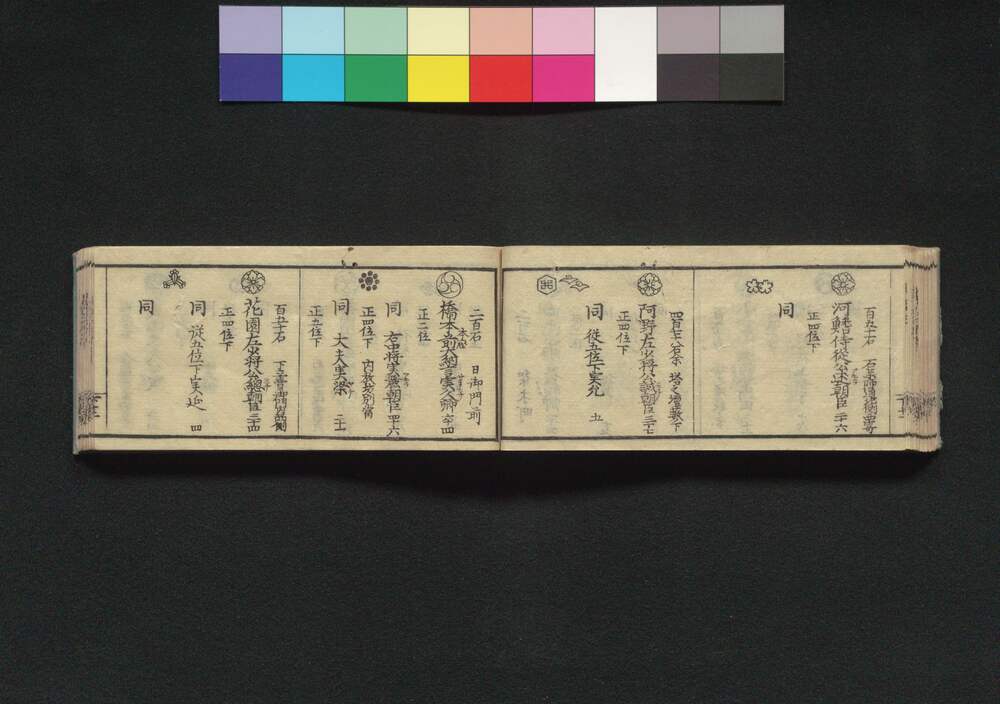 百五十石
河鰭侍従公述朝臣 二十六
正四位下
同
四百七十八石余 塔之壇藪ノ下
阿野左少将公誠朝臣 三十七
正四位下
同 従五位下実允 五
二百石 日御門前
橋本前大納言実久卿 六十四
正二位 本座
同 右中将実麗朝臣 四十六
正四位下 内教坊別当
同 大夫実梁 二十一
正五位下
百五十石
花園左少将公總朝臣 三十四
正四位下
同 従五位下実延 四
同